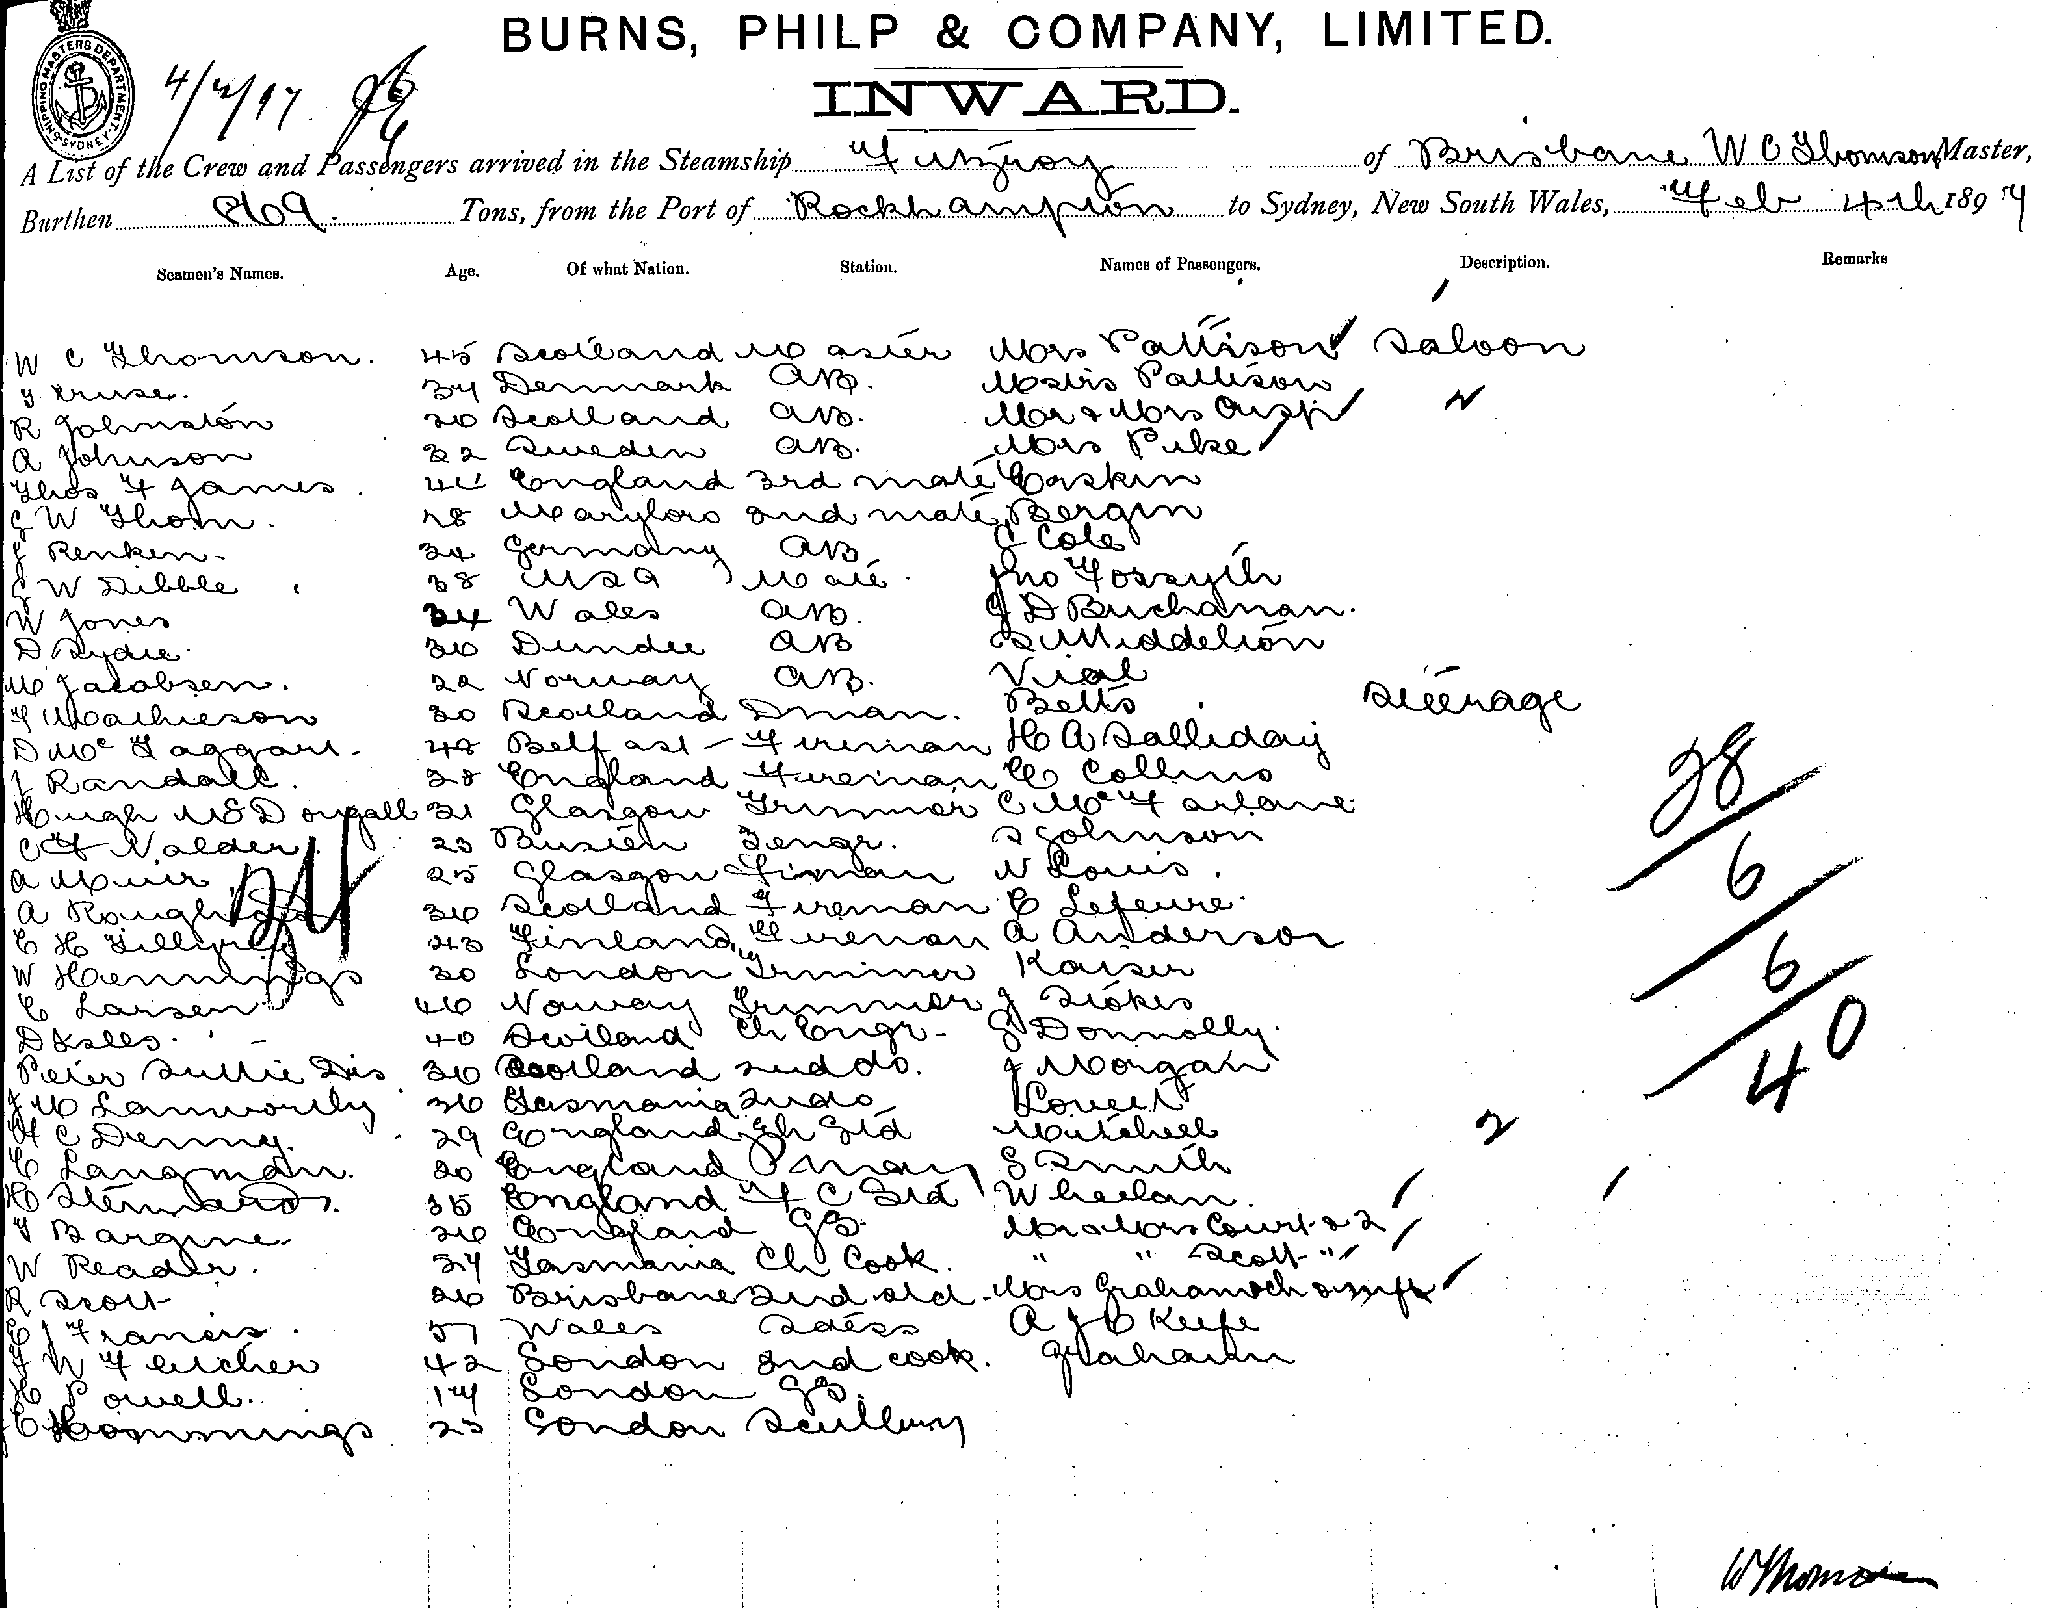 BURNS, PHILP & COMPANY, LIMITED.
INWARD.
SHIPPING MASTERS DEPARTMENT. SYDNEY.
4/2/97
A List of the Crew and Passengers arrived in the Steamship Fitzroy of Brisbane W C Thomson Master,
Burthen 869. Tons, from the Port of Rockhampton to Sydney, New South Wales, Feb 4th 1897
Seamen's Names. Age. Of what Nation. Station. Names of Passengers. Description. Remarks
W C Thomson. 45 Scotland Master Mrs Pattison Saloon
Kruse. 34 Denmark AB. Pattison
R Johnston Scotland AB. Mr & Mrs "
A Johnson 22 Sweden AB. Mrs
Thos F James. England 3rd mate Erskin
W Thom. 28 Maryboro 2nd mate Bergin
J Renken. 34 Germany AB C Cole
W Dibble 38 USA Mate. Jno Forsyth
W Jones 34 Wales AB. J D Buchanan.
D 36 Dundee AB Middelton
M Jacobsen. 22 Norway AB. Vial
Mathieson 30 Scotland Dman. Betts Steerage
D McTaggart. 48 Belfast Fireman H A Salliday
J Randall. 28 England Fireman E Collins
Hugh McDougall 31 Glasgow Trimmer C McFarlane
C F Nalder. 23 3 engr. S Johnson
A Muir 25 Glasgow Fiman N Louis.
A 36 Scotland Fireman E Lefeure.
C H 43 Finland Fireman A Anderson
W Hennings 30 London Trimmer Kaiser
C Larsen 46 Norway Trimmer J Stokes
D 40 Scotland Ch Engr. J Donnolly.
Peter Suttie Dis 36 Scotland 2nd do. J Morgan
J M Lanworthy 36 Tasmania Lovett
H C Denny. 29 England Mitchell
C Langman. 20 England Pman S Smith
H 35 England F C Std Whelan.
Bargine 26 England GS. Mr & Mrs Court & 2
W Reader. 34 Tasmania Ch Cook. " " Scott "
R Scott 26 Brisbane 2nd std. Mrs Graham
Francis. 51 Wales Stdess A J O Keefe
W Fletcher 42 London 2nd cook. Graham
H Powell. 17 London GS.
C Hommings 23 London Scullery
38
6
6
40
2
W Thomson